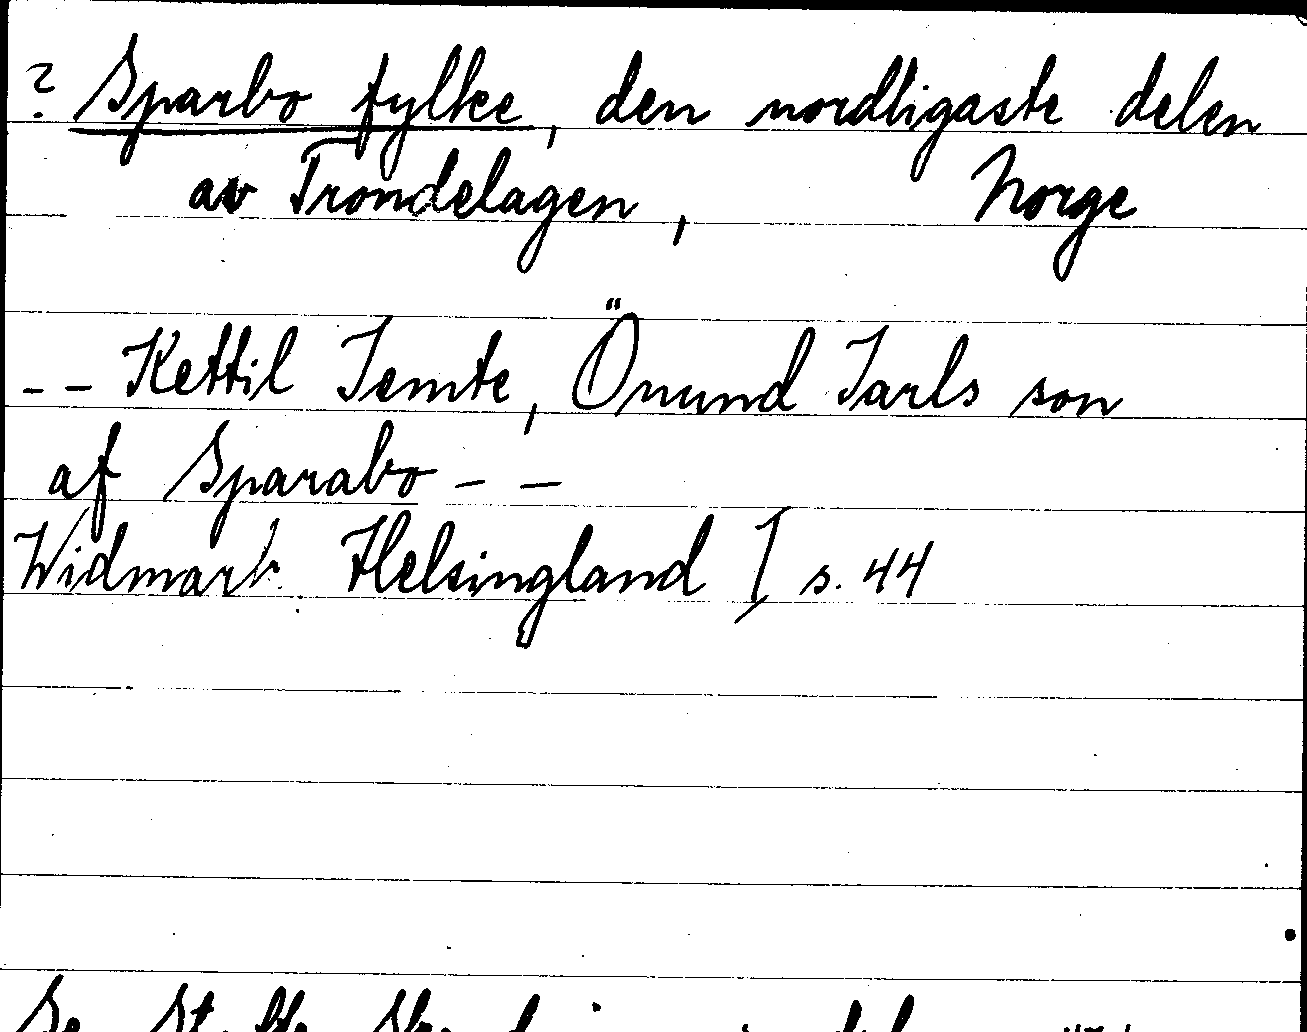 ? Sparbo fylke, den nordligaste delen
av Trondelagen, Norge
-- Kettil Jemte, Önund Jarls son
af Sparabo --
Widmark Helsingland I s. 44